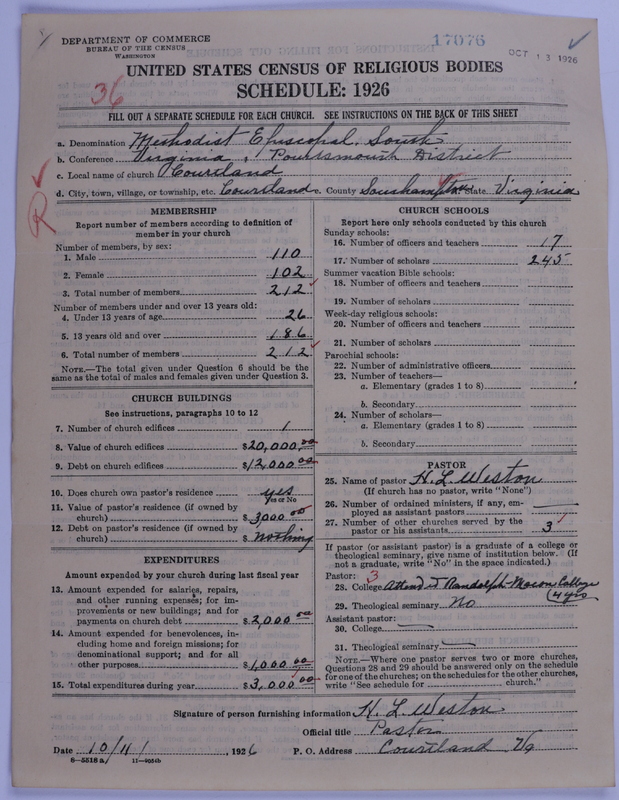 DEPARTMENT OF COMMERCE
BUREAU OF THE CENSUS
WASHINGTON
17076
OCT 13 1926
UNITED STATES CENSUS OF RELIGIOUS BODIES
SCHEDULE: 1926
36
FILL OUT A SEPARATE SCHEDULE FOR EACH CHURCH. SEE INSTRUCTIONS ON THE BACK OF THIS SHEET
a. Denomination Methodist Episcopal, South
b. Conference Virginia, Pourtsmouth District
c. Local name of church Courtland
d. City, town, village, or township, etc. Courtland e. County Southampton f. State Virginia
MEMBERSHIP
Report number of members according to definition of
member in your church
Number of members, by sex:
1. Male 110
2. Female 102
3. Total number of members 212
Number of members under and over 13 years old:
4. Under 13 years of age 26
5. 13 years old and over 186
6. Total number of members 212
NOTE.—The total given under Question 6 should be the
same as the total of males and females given under Question 3.
CHURCH BUILDINGS
See instructions, paragraphs 10 to 12
7. Number of church edifices 1
8. Value of church edifices $20,000.00
9. Debt on church edifices $12,000 00
10. Does church own pastor's residence yes
Yes or No
11. Value of pastor's residence (if owned by
church) $3000 00
12. Debt on pastor's residence (if owned by
church) $ nothing
EXPENDITURES
Amount expended by your church during last fiscal year
13. Amount expended for salaries, repairs,
and other running expenses; for im-
provements or new buildings; and for
payments on church debt $2,000 00
14. Amount expended for benevolences, in-
cluding home and foreign missions; for
denominational support; and for all
other purposes $1,000 00
15. Total expenditures during year $3,000 00
CHURCH SCHOOLS
Report here only schools conducted by this church
Sunday schools:
16. Number of officers and teachers 17
17. Number of scholars 245
Summer vacation Bible schools:
18. Number of officers and teachers
19. Number of scholars
Week-day religious schools:
20. Number of officers and teachers
21. Number of scholars
Parochial schools:
22. Number of administrative officers
23. Number of teachers—
a. Elementary (grades 1 to 8)
b. Secondary
24. Number of scholars—
a. Elementary (grades 1 to 8)
b. Secondary
PASTOR
25. Name of pastor H. L. Weston
(If church has no pastor, write "None")
26. Number of ordained ministers, if any, em-
ployed as assistant pastors
27. Number of other churches served by the
pastor or his assistants 3
If pastor (or assistant pastor) is a graduate of a college or
theological seminary, give name of institution below. (If
not a graduate, write "No" in the space indicated.)
Pastor: 3
28. College Attend Randolph-Macon College
(4 yrs
29. Theological seminary No
Assistant pastor:
30. College
31. Theological seminary
NOTE.—Where one pastor serves two or more churches,
Questions 28 and 29 should be answered only on the schedule
for one of the churches; on the schedules for the other churches,
write "See schedule for church."
Signature of person furnishing information H. L. Weston
Official title Pastor
Date 10/11/, 1926 P. O. Address Courtland Va
8—5518 a 11—9054b